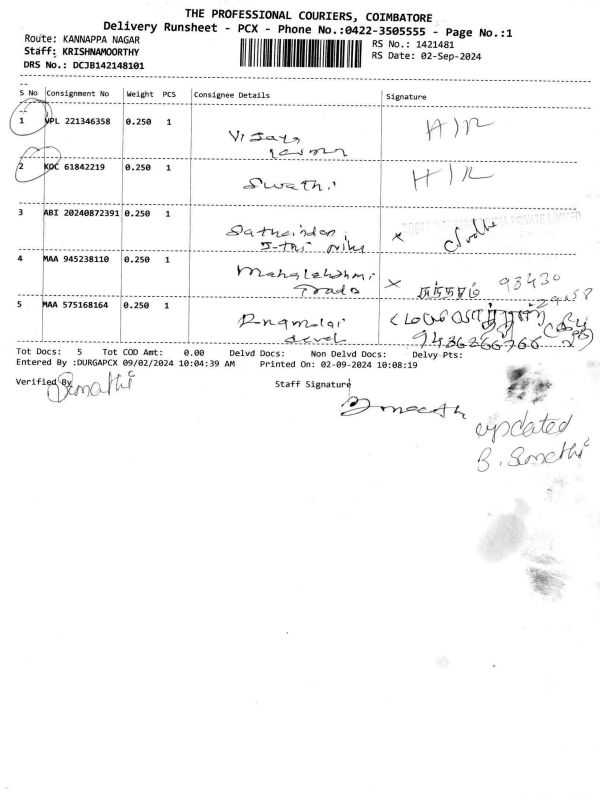 THE PROFESSIONAL COURIERS, COIMBATORE
Delivery Runsheet - PCX - Phone No.:0422-3505555 - Page No.:1
Route: KANNAPPA NAGAR
RS No.: 1421481
Staff: KRISHNAMOORTHY
RS Date: 02-Sep-2024
DRS No.: DCJB142148101
S No Consignment No Weight PCS Consignee Details Signature
1 VPL 221346358 0.250 1 H/R
Vijaya
kumar
2 KOC 61842219 0.250 1 Swathi H/R
3 ABI 20240872391 0.250 1
4 MAA 945238110 0.250 1 Mahalakshmi
Trads 93430
5 MAA 575168164 0.250 1
Tot Docs: 5 Tot COD Amt: 0.00 Delvd Docs: Non Delvd Docs: Delvy Pts:
Entered By :DURGAPCX 09/02/2024 10:04:39 AM Printed On: 02-09-2024 10:08:19
Verified By Staff Signature
updated
B. Sumathi